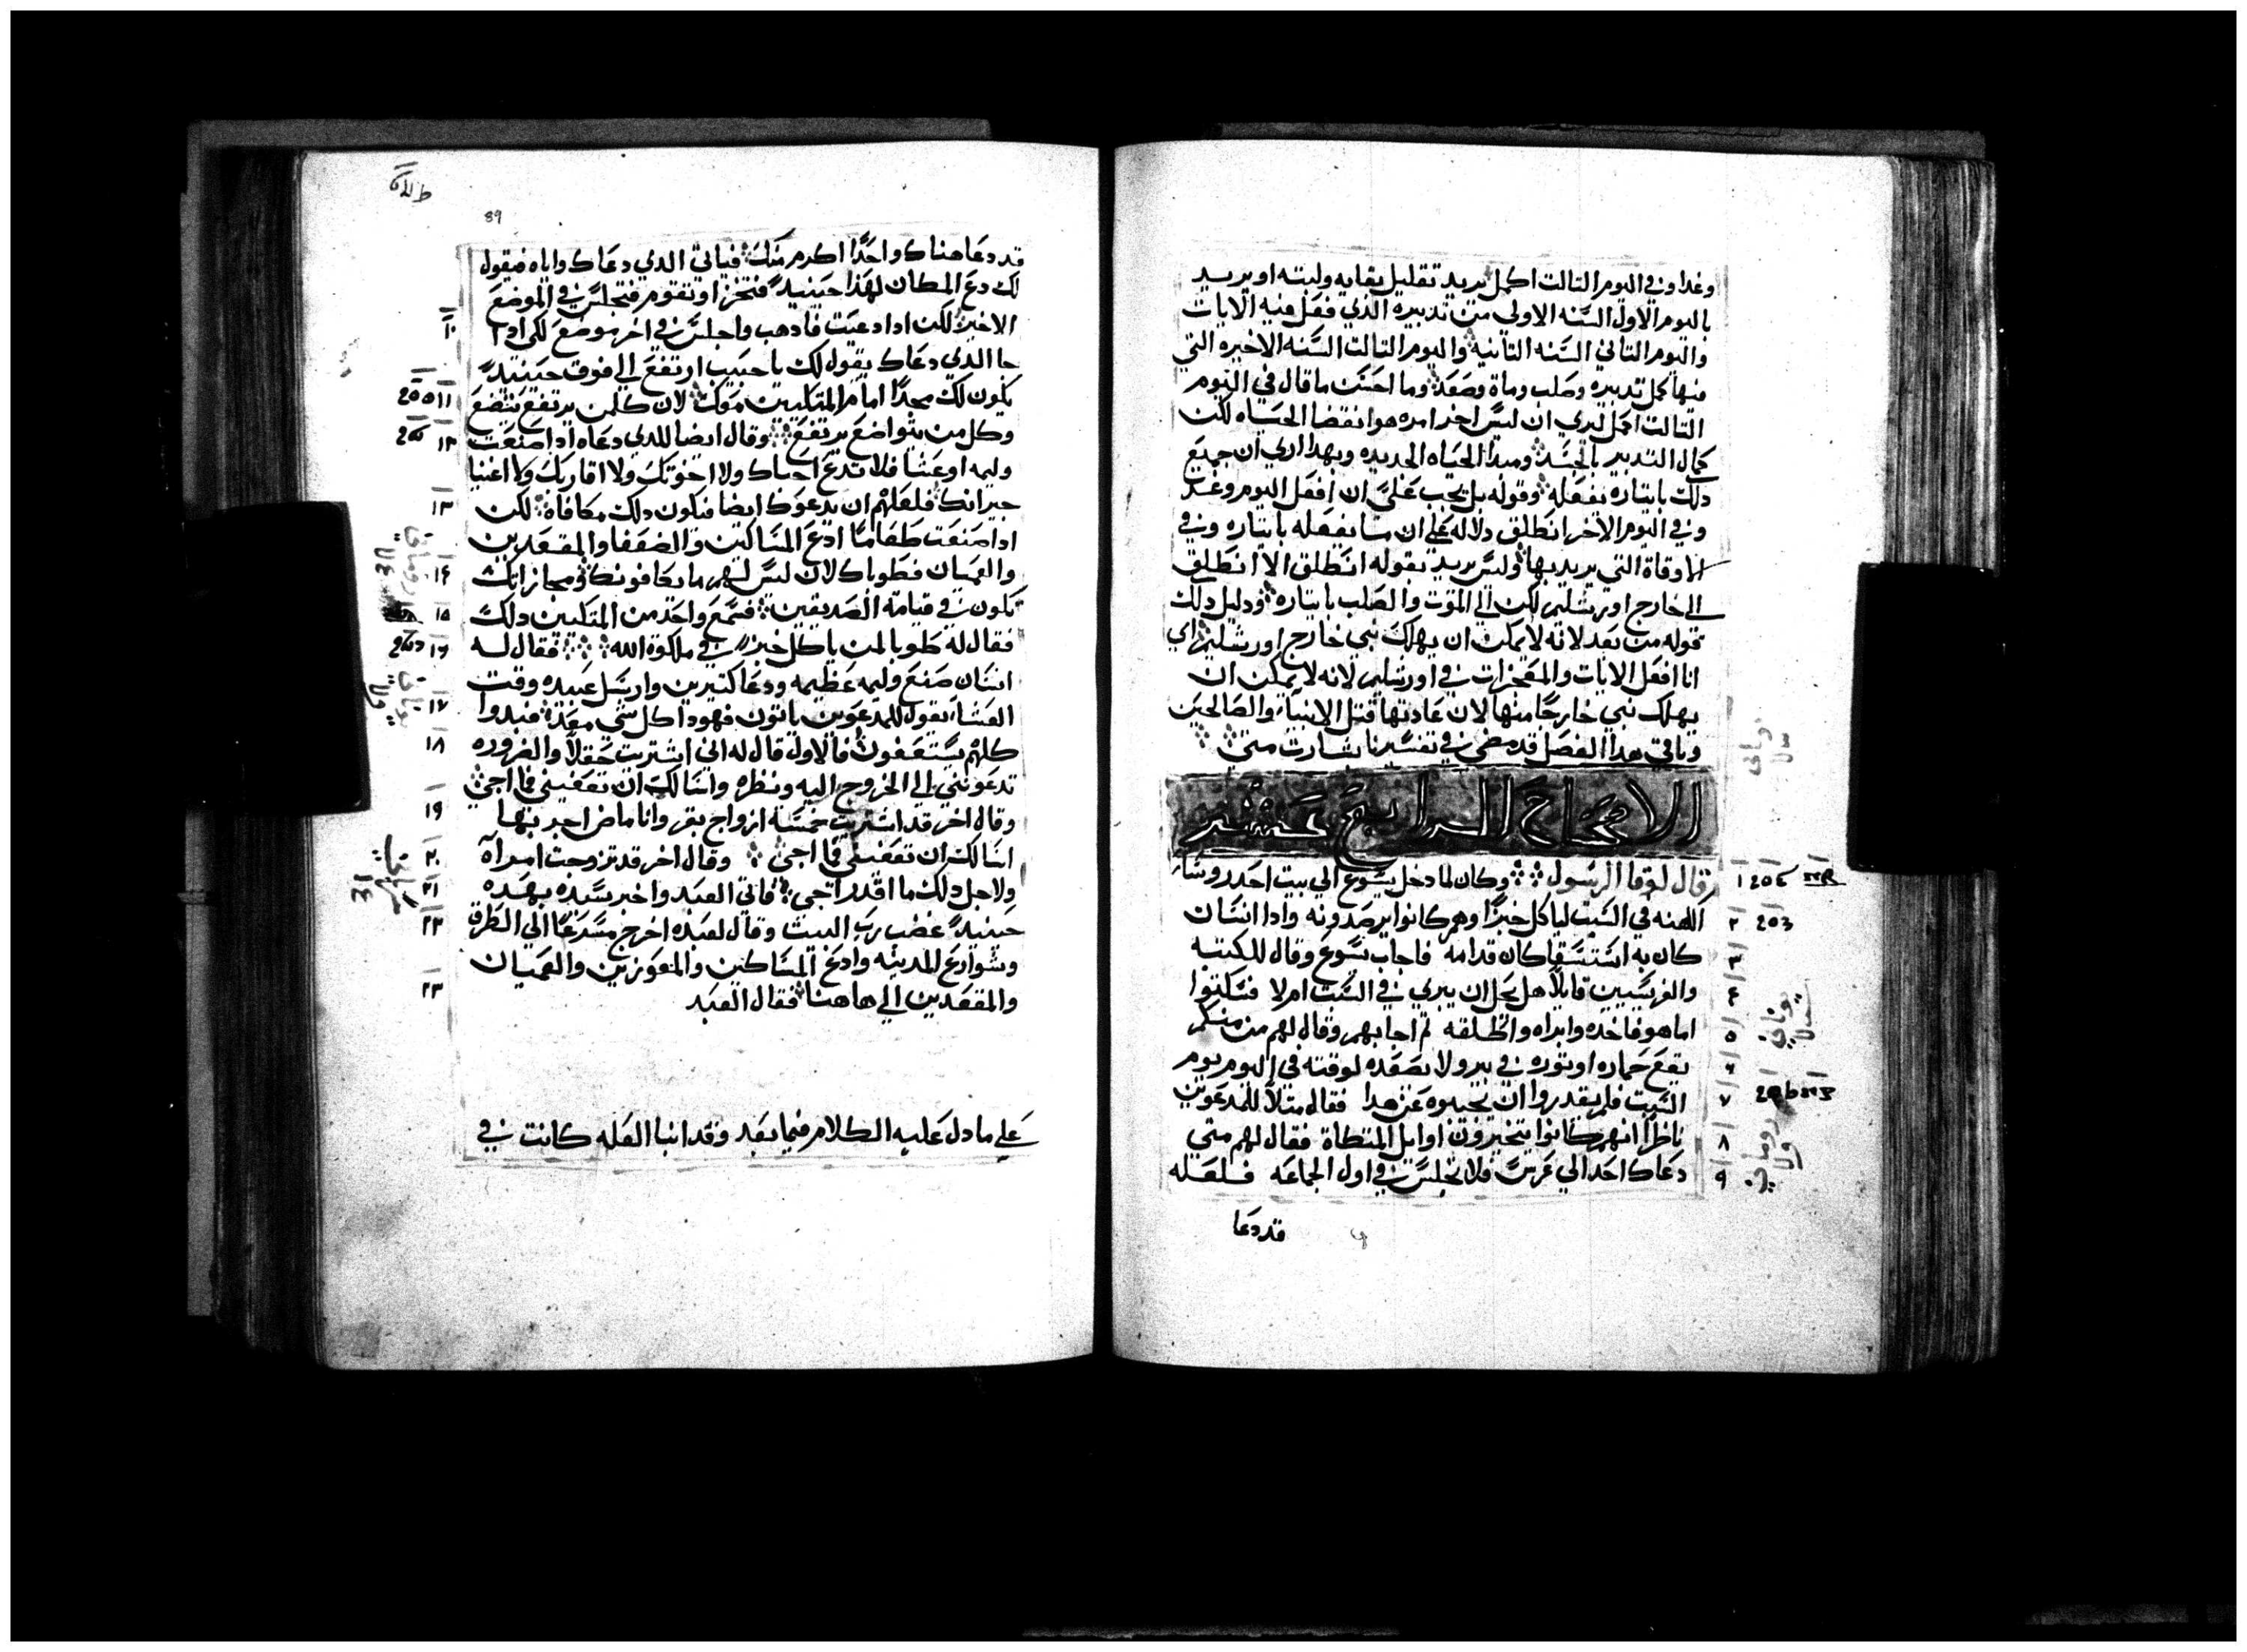 وغدا وفي اليوم التالت اكمل يريد تقليل بقايه ولبته او يريد
باليوم الاول السنه الاولي من تدبيره الذي فعل فيه الايات
واليوم التاني السنه التانيه واليوم التالت السنه الاخيره التي
فيها كمل تدبيره وصلب ومات وصعد وما احسن ما قال في اليوم
التالت اكمل ليري ان ليس اخر امره هو انقضا الحياه لكن
كمال التدبير بالجسد ومبدا الحياه الجديده وبهدا اري ان جميع
دلك بايتاره بفعله وقوله بل يجب علي ان افعل اليوم وغد
وفي اليوم الاخر انطلق دلاله علي ان ما يفعله بايتاره وفي
الاوقاة التي يريد بها وليس يريد بقوله انطلق الا انطلق
الي خارج اورشليم لكن الي الموت والصلب بايتاره ودليل دلك
قوله من بعد لانه لا يمكن ان يهلك نبي خارج اورشليم اي
انا افعل الايات والمعجزات في اورشليم لانه لا يمكن ان
يهلك نبي خارجًا منها لان عادتها قتل الانبيا والصالحين
وباقي هدا الفصل قد مضي في تفسيرنا بشارت متي
الاصحاح الرابع عشر
قال لوقا الرسول وكان لما دخل يسوع الي بيت احد روسا
١ 205
الكهنه في السبت لياكل خبزًا وهم كانوا يرصدونه وادا انسان
٢ 203
كان به استسقا كان قدامه فاجاب يسوع وقال للكتبه
٣
والفريسيين قايلاً هل يحل ان يبري في السبت ام لا فسكتوا
٤
يوناني
اما هو فاخده وابراه واطلقه تم اجابهم وقال لهم من منكم
٥
يقع حماره او توره في بير ولا يصعده لوقته في اليوم يوم
٦
السبت فلم يقدروا ان يجيبوه عن هدا فقال متلاً للمدعوين
٧
ناظرًا انهم كانوا يتخيرون اوايل المتكاة فقال لهم متي
٨
روماني
دعاك احد الي عرس فلا تجلس في اول الجماعه فلعله
٩
قد دعا
89
قد دعا هناك واحدًا اكرم منك فياتي الدي دعاك واياه فيقول
لك دع المكان لهذا حينيد فتخزا وتقوم فتجلس في الموضع
الاخير لكن ادا دعيت فادهب واجلس في اخر موضع لكي ادا
١٠
جا الدي دعاك يقول لك يا حبيب ارتفع الي فوق حينيد
يكون لك مجدًا امام المتكيين معك لان كل من يرتفع يتضع
١١
وكل من يتواضع يرتفع وقال ايضا للدي دعاه ادا صنعت
١٢
وليمه او عشا فلا تدع احباك ولا اخوتك ولا اقاربك ولا اغنيا
جيرانك فلعلهم ان يدعوك ايضا فيكون دلك مكافاة لكن
١٣
ادا صنعت طعامًا ادع المساكين والضعفا والمقعدين
والعميان فطوباك لان ليس لهم ما يكافونك في مجازاتك
١٤
تكون في قيامة الصديقين فسمع واحد من المتكيين دلك
١٥
فقال له طوبا لمن ياكل خبز في ملكوة الله فقال له
١٦
انسان صنع وليمه عظيمه ودعا كتيرين وارسل عبيده وقت
العشا يقول للمدعوين ياتون فهودا كل شي معد فبدوا
١٧
كلهم يستعفون فالاول قال له اني اشتريت حقلاً والضروره
١٨
تدعوني الي الخروج اليه ونظره واسالك ان تعفيني فما اجي
وقال اخر قد اشتريت خمسة ازواج بقر وانا ماض اجربها
١٩
اسالك ان تعفيني فما اجي وقال اخر قد تزوجت امراة
٢٠
ولاجل دلك ما اقدر اجي فاتي العبد واخبر سيده بهده
٢١
حينيد غضب رب البيت وقال لعبده اخرج مسرعًا الي الطرق
وشوارع المدينه وادع المساكين والمعوزين والعميان
٢٢
والمقعدين الي هاهنا فقال العبد
٢٣
علي ما دل عليه الكلام فيما بعد وقد انبا العله كانت في